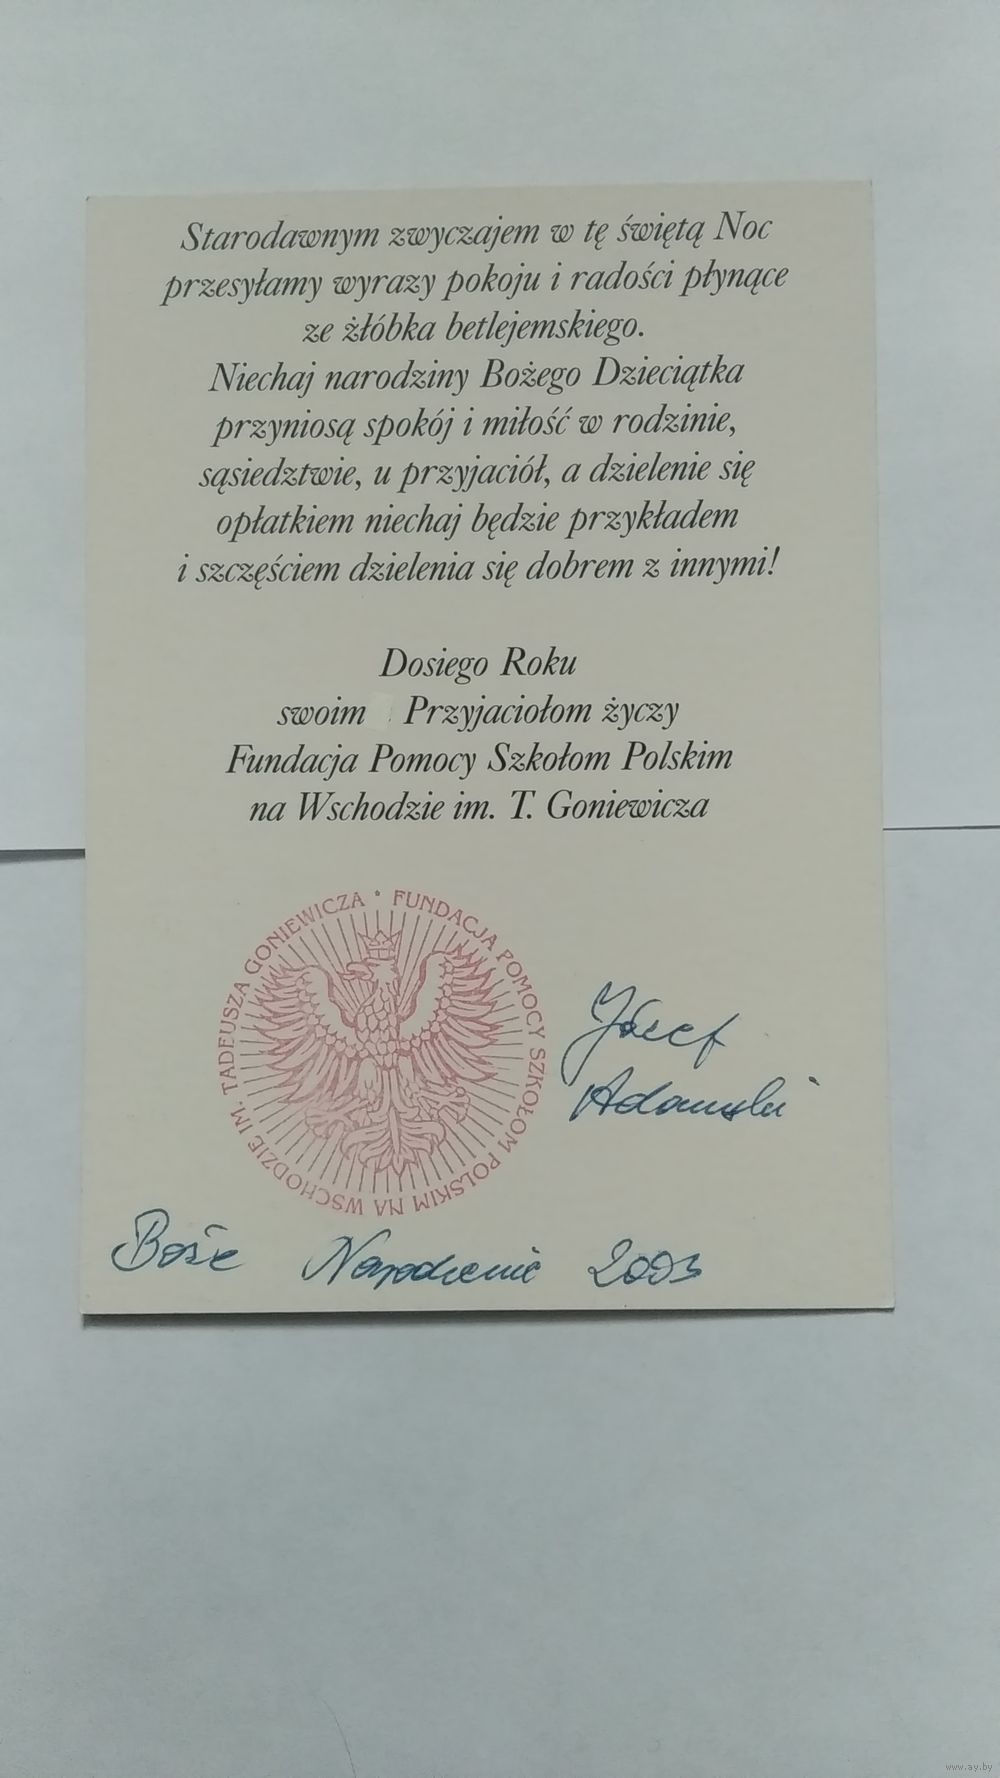 Starodawnym zwyczajem w tę świętą Noc
przesyłamy wyrazy pokoju i radości płynące
ze żłóbka betlejemskiego.
Niechaj narodziny Bożego Dzieciątka
przyniosą spokój i miłość w rodzinie,
sąsiedztwie, u przyjaciół, a dzielenie się
opłatkiem niechaj będzie przykładem
i szczęściem dzielenia się dobrem z innymi!
Dosiego Roku
swoim Przyjaciołom życzy
Fundacja Pomocy Szkołom Polskim
na Wschodzie im. T. Goniewicza
FUNDACJA POMOCY SZKOŁOM POLSKIM NA WSCHODZIE IM. TADEUSZA GONIEWICZA
Józef
Adamski
Boże Narodzenie 2003
www.ay.by